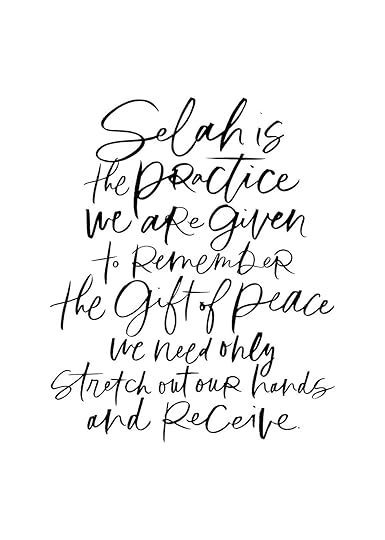 Selah is
the practice
we are given
to remember
the gift of peace
we need only
stretch out our hands
and receive.